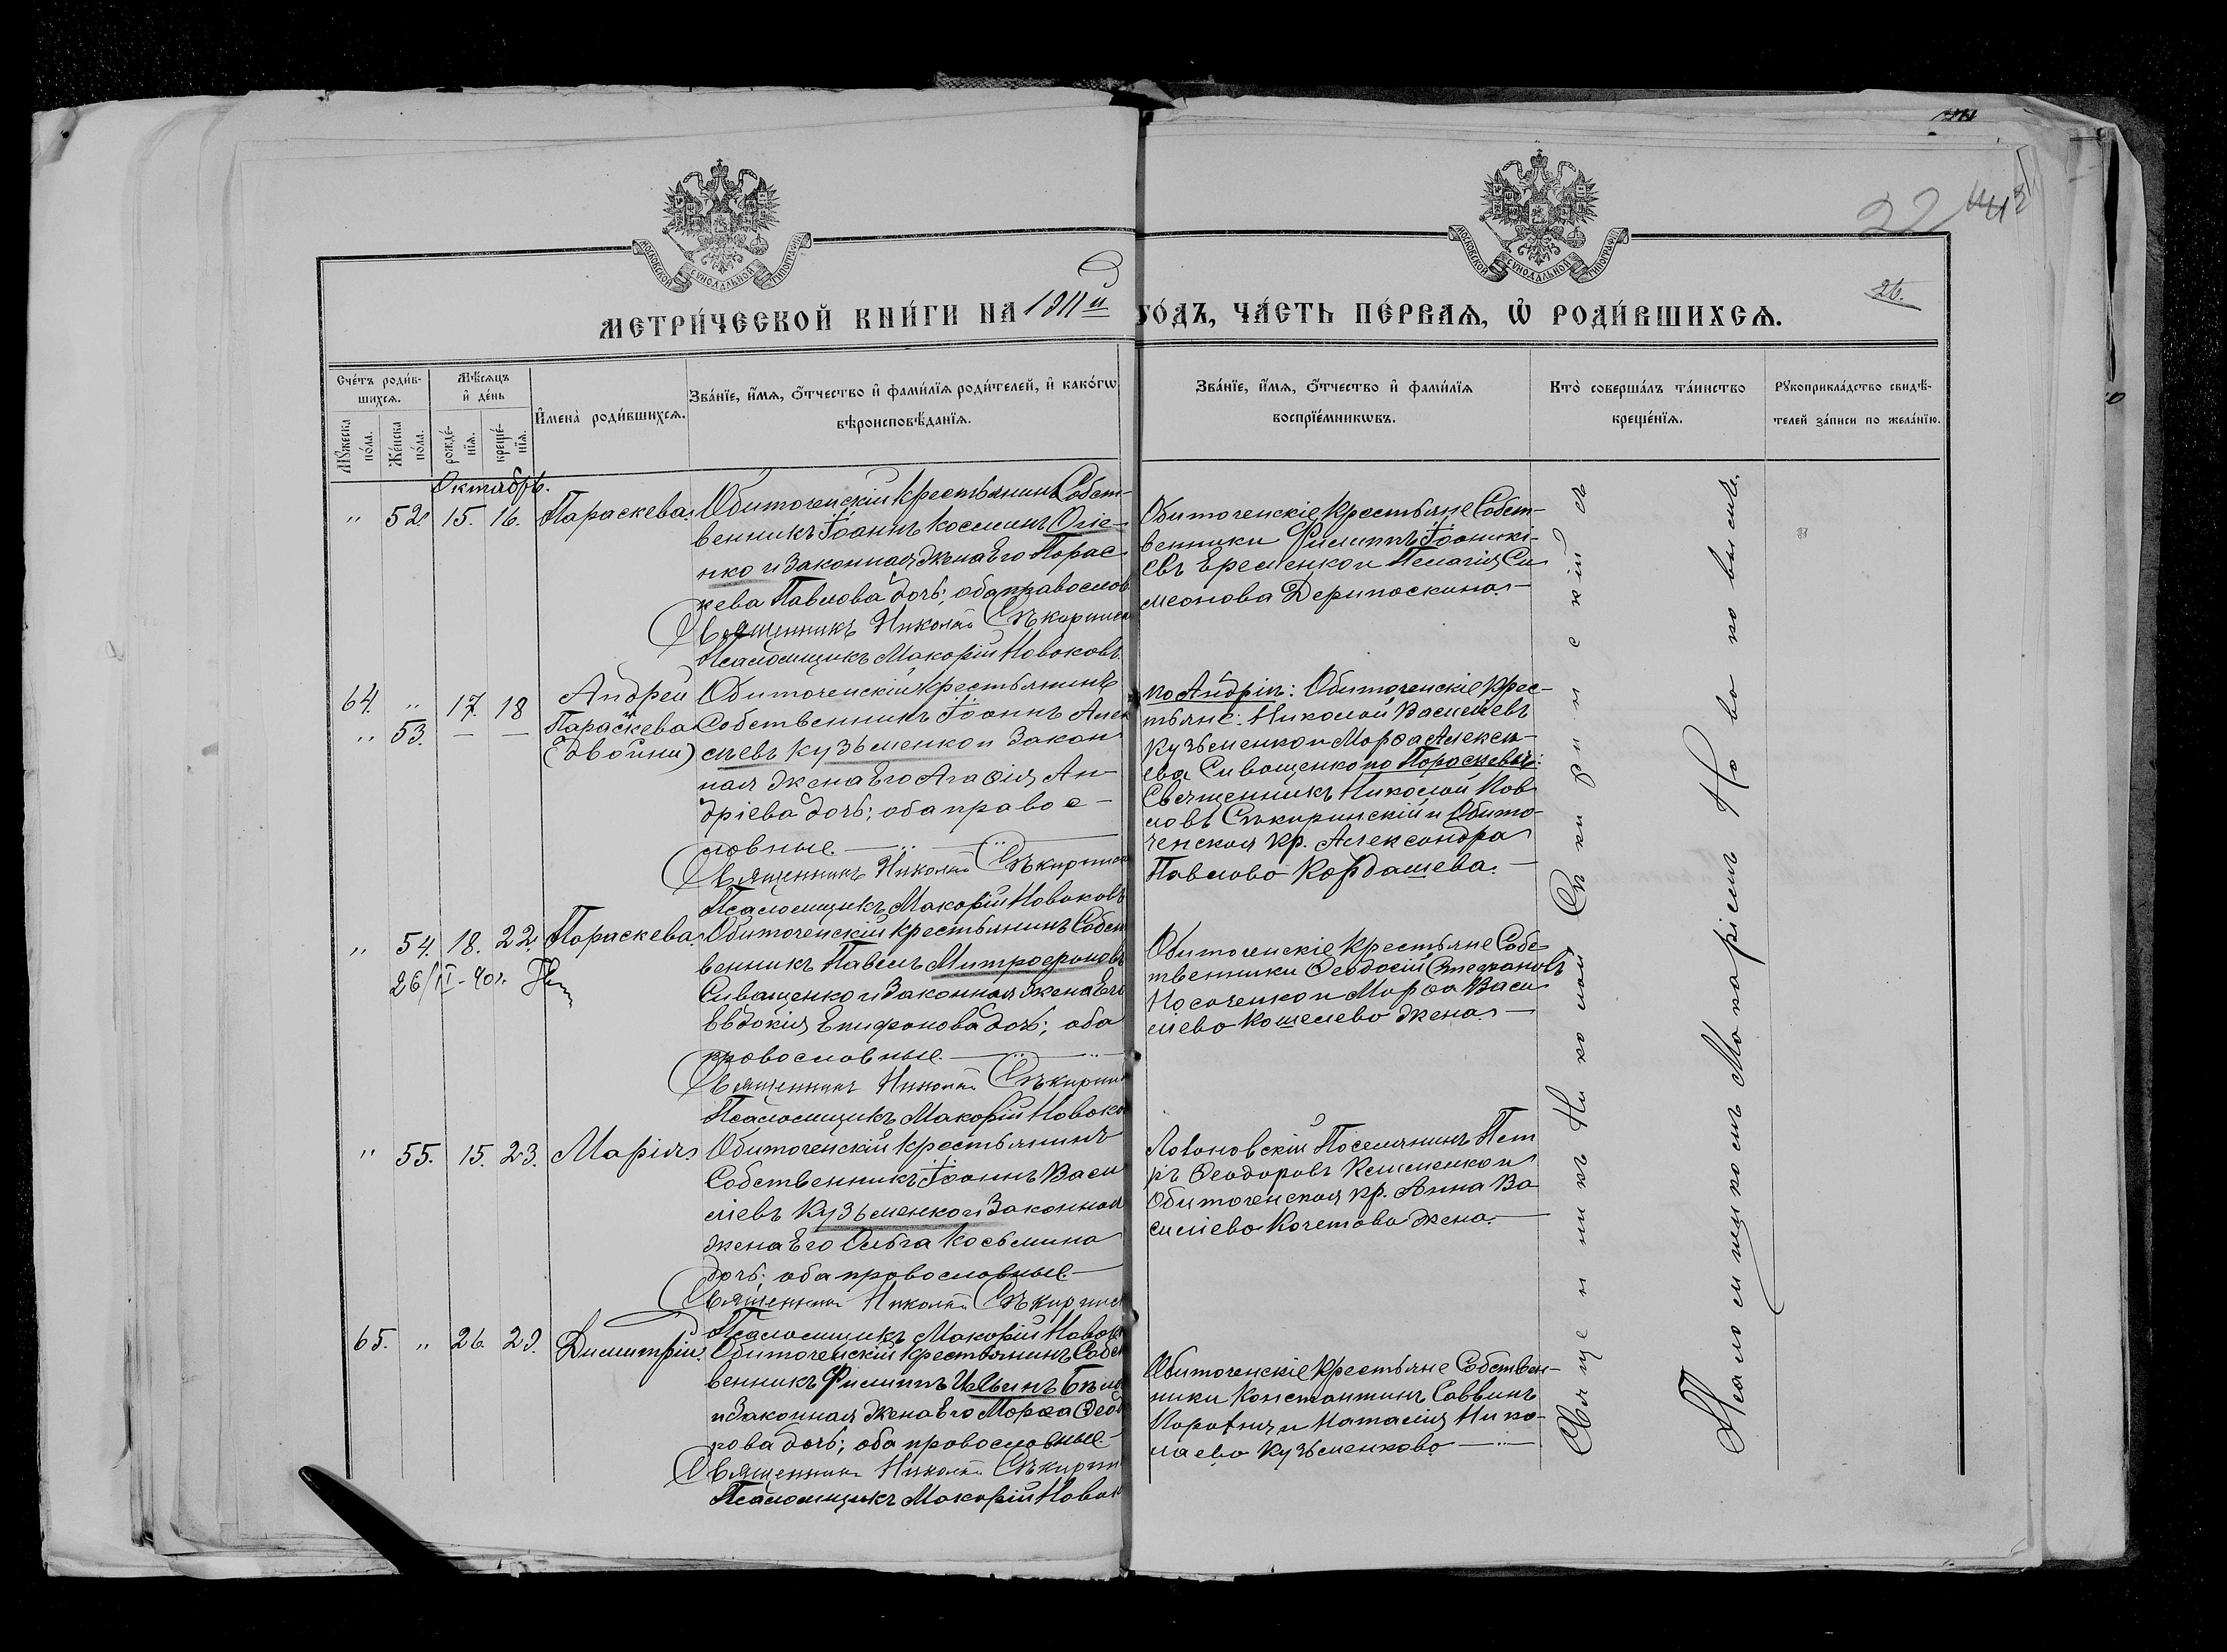 МОСКОВСКОЙ СѴНОДАЛЬНОЙ ТИПОГРАФІИ
МОСКОВСКОЙ СѴНОДАЛЬНОЙ ТИПОГРАФІИ
22
26.
МЕТРИ́ЧЕСКОЙ КНИ́ГИ НА 1911й ГО́ДЪ, ЧА́СТЬ ПЕ́РВАѦ, Ѡ҆ РОДИ́ВШИХСѦ.
Сче́тъ роди́в-
шихсѧ.
Мѣ́сѧцъ
и҆ де́нь
Мꙋ́жеска
по́ла.
Же́нска
по́ла.
рожде́-
нїѧ.
креще́-
нїѧ.
И҆мена̀ роди́вшихсѧ.
Зва́нїе, и҆́мѧ, ѻ҆́тчество и҆ фами́лїѧ роди́телей, и҆ како́гѡ
вѣроисповѣ́данїѧ.
Зва́нїе, и҆́мѧ, ѻ҆́тчество и҆ фами́лїѧ
воспрїе́мникѡвъ.
Кто̀ соверша́лъ та́инство
креще́нїѧ.
Рꙋкоприкла́дство свидѣ́-
телей за́писи по жела́нїю.
Октябрь.
" 52 15. 16. Параскева.
Обиточенскій крестьянинъ Собст-
венникъ Іоаннъ Косминъ Огіе-
нко и Законная Жена Его Парас-
кева Павлова дочь; оба православ
Священникъ Николай Сѣкирин
Псаломщикъ Макарій Новаковъ.
Обиточенскіе Крестьяне Собст-
венники Филиппъ Іоаникі-
евъ Еременко и Пелагія Си
меонова Дерипаскина.—
64. " 17. 18 Андрей
" 53. — — Параскева
(двойни)
Обиточенскій крестьянинъ
Собственникъ Іоаннъ Алек
сѣевъ Кузьменко и Закон
ная Жена Его Агафія Ан-
дріева дочь; оба правос-
лавные.
Священникъ Николай Сѣкирин
Псаломщикъ Макарій Новаковъ
по Андріѣ: Обиточенскіе Крес-
тьяне: Николай Васильевъ
Кузьменко и Марѳа Алексѣ-
ева Сиващенко по Параскевѣ:
Священникъ Николай Пав
ловъ Сѣкиринскій и Обито-
ченская Кр. Александра
Павлова Кардашева.—
" 54. 18. 22. Параскева.
26/II-40г.
Обиточенскій крестьянинъ Собст
венникъ Павелъ Митрофановъ
Сиващенко и Законная Жена Его
Евдокія Епифанова дочь; оба
православные.
Священникъ Николай Сѣкирин
Псаломщикъ Макарій Новако
Обиточенскіе Крестьяне Собс
твенники Ѳеодосій Стефановъ
Носаченко и Марѳа Васи
лієва Кошелева Жена.—
" 55. 15. 23. Марія.
Обиточенскій крестьянинъ
Собственникъ Іоаннъ Васи
ліевъ Кузьменко и Законная
Жена Его Ольга Косьмина
дочь; оба православные.
Священникъ Николай Сѣкирин
Псаломщикъ Макарій Новак
Поселянинъ Пет
ръ Ѳеодоровъ и
Обиточенская Кр. Анна Ва
силіева Кочетова Жена.—
65. " 26. 29. Димитрій.
Обиточенскій крестьянинъ Собст
венникъ Филиппъ Ильинъ
и Законная Жена Его Марѳа Ѳеод
рова дочь; оба православные
Священникъ Николай Сѣкирин
Псаломщикъ Макарій Новак
Обиточенскіе Крестьяне Собствен-
ники Константинъ Саввинъ
и Наталія Нико-
лаева Кузьменкова
Священникъ Николай Сѣкиринскій съ
Псаломщикомъ Макаріемъ Новаковымъ.